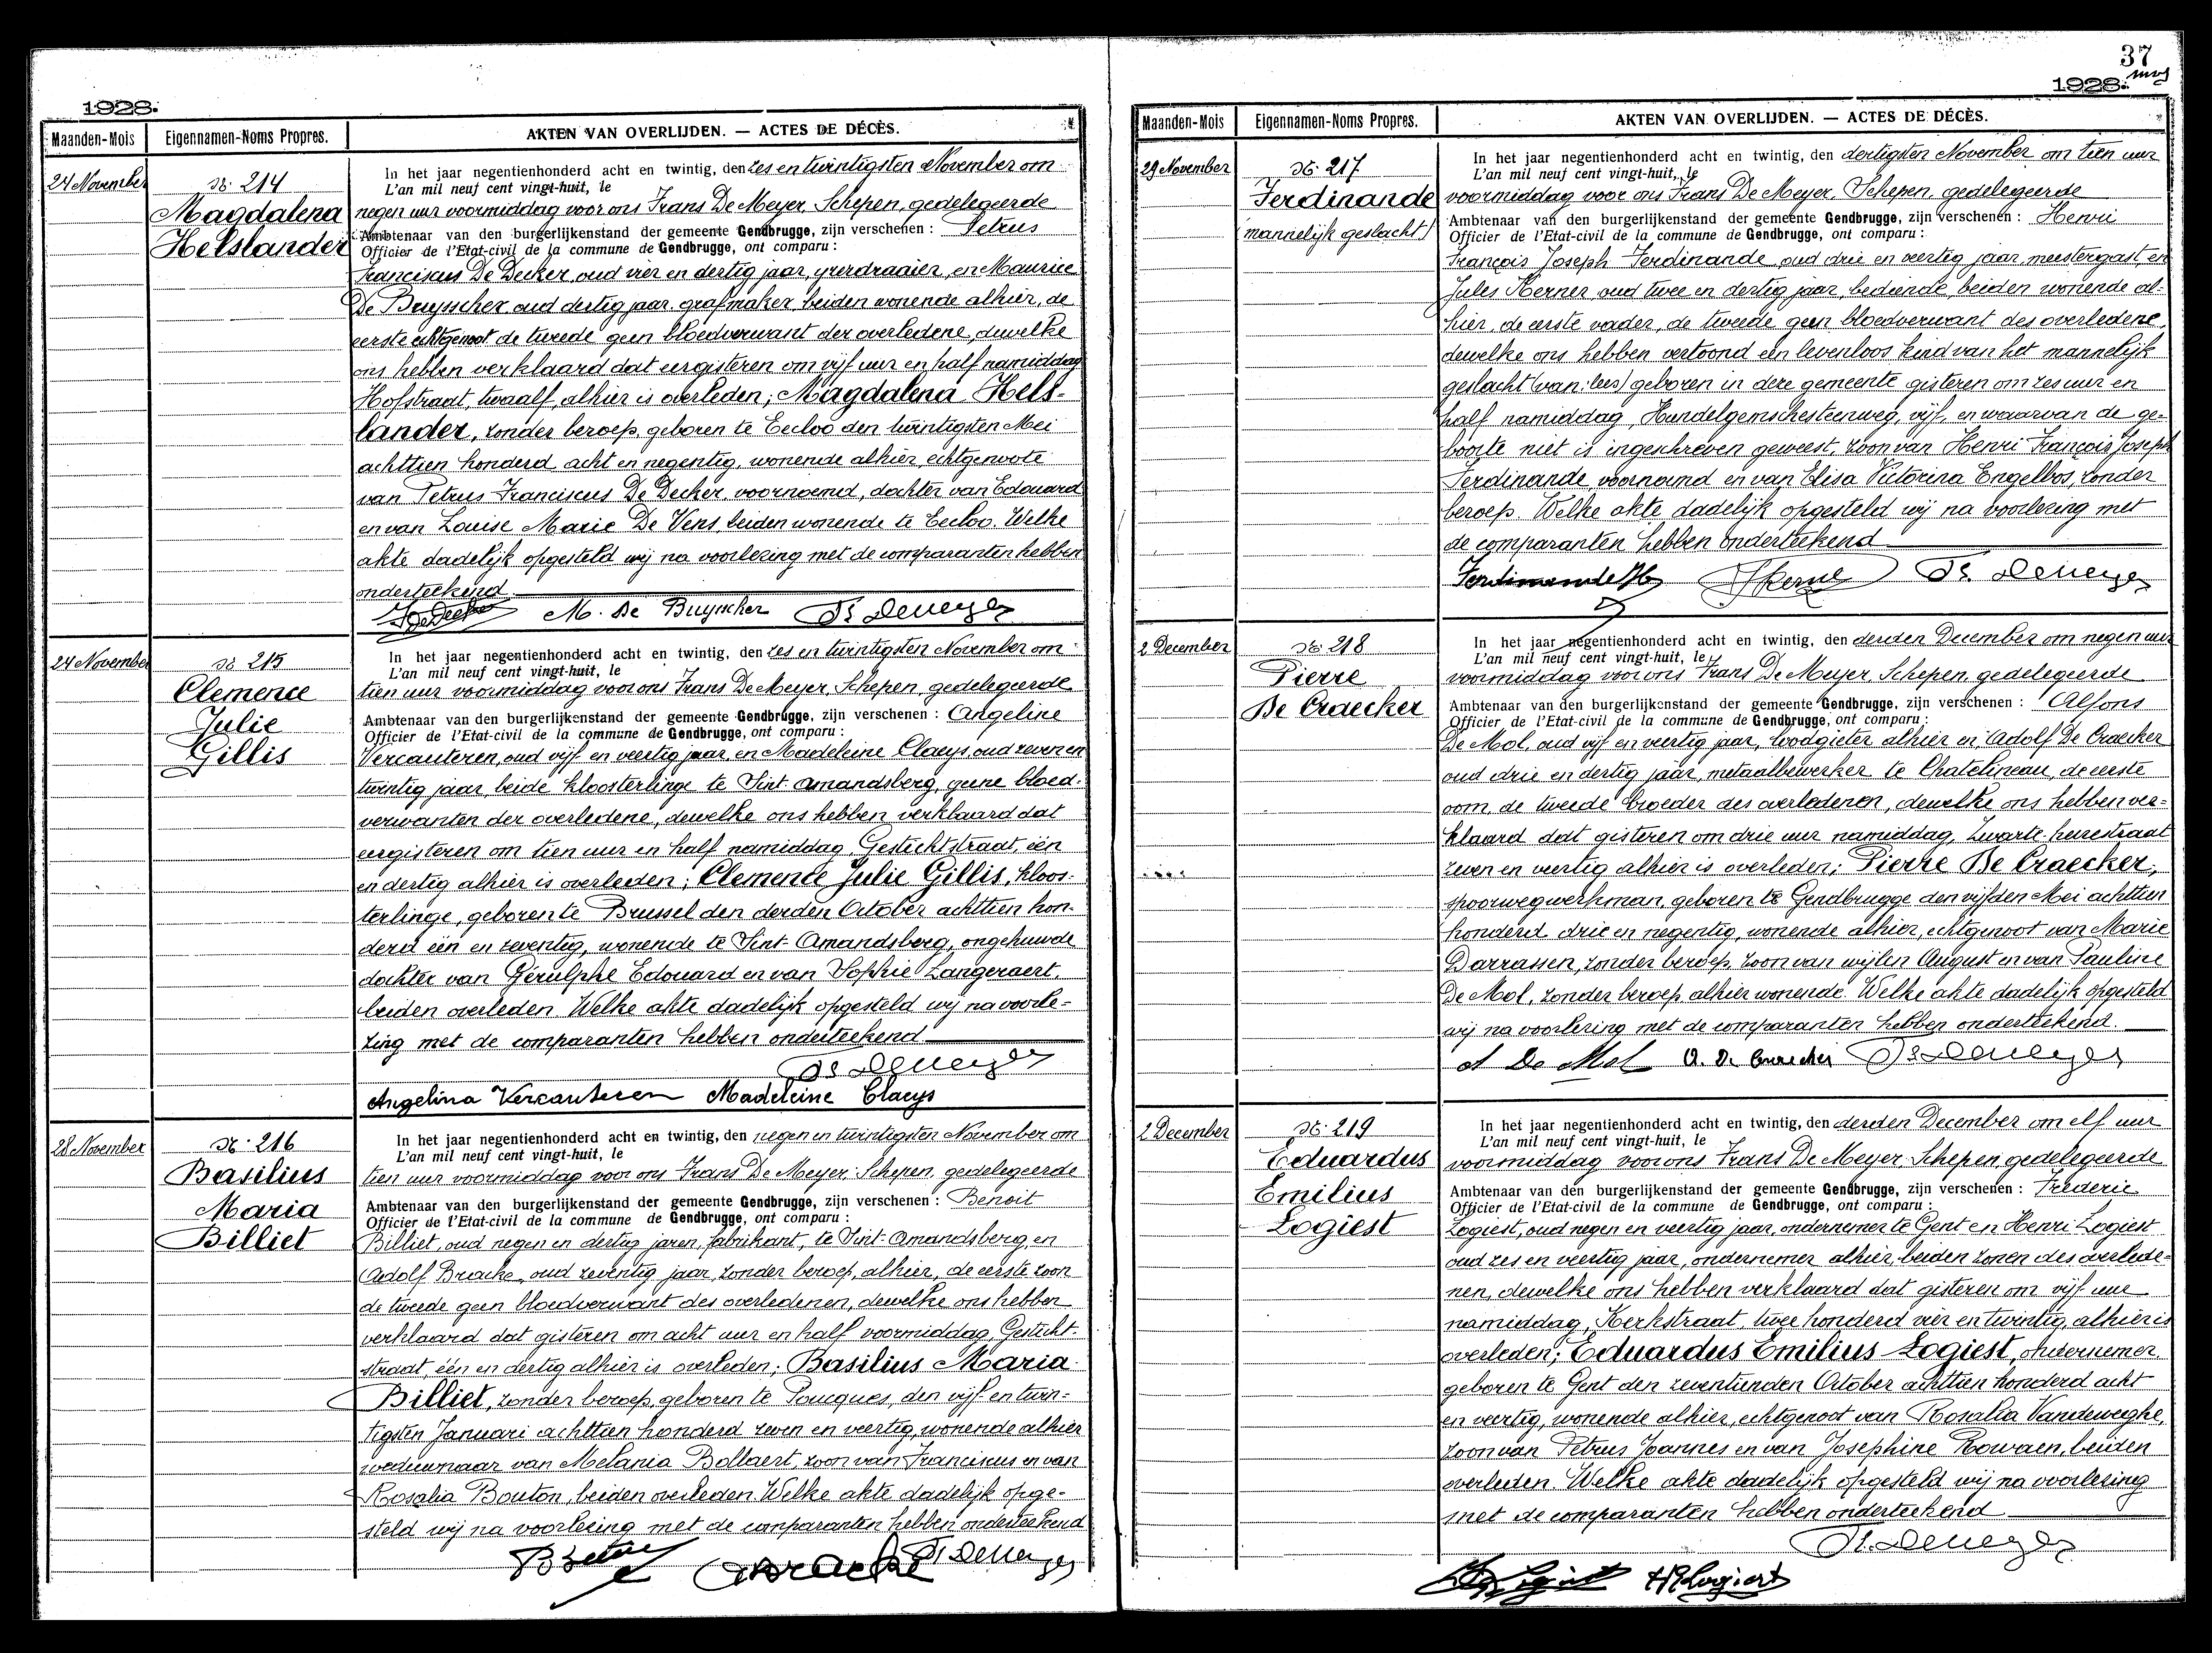 1928.
Maanden-Mois
Eigennamen-Noms Propres.
AKTEN VAN OVERLIJDEN. — ACTES DE DÉCÈS.
24 November
N: 214
Magdalena
Helslander
In het jaar negentienhonderd acht en twintig, den zes en twintigsten November om
L'an mil neuf cent vingt-huit, le
negen uur voormiddag voor ons Frans De Meyer, Schepen, gedelegeerde
Ambtenaar van den burgerlijkenstand der gemeente Gendbrugge, zijn verschenen : Petrus
Officier de l'Etat-civil de la commune de Gendbrugge, ont comparu :
Franciscus De Decker, oud vier en dertig jaar, yzerdraaier, en Maurice
De Buysscher, oud dertig jaar, grafmaker, beiden wonende alhier, de
eerste echtgenoot de tweede geen bloedverwant der overledene, dewelke
ons hebben verklaard dat eergisteren om vijf uur en half namiddag
Hofstraat, twaalf, alhier is overleden; Magdalena Hels-
lander, zonder beroep, geboren te Eecloo den twintigsten Mei
achttien honderd acht en negentig, wonende alhier, echtgenoote
van Petrus Franciscus De Decker, voornoemd, dochter van Edouard
en van Louise Marie De Vens, beiden wonende te Eecloo. Welke
akte dadelijk opgesteld wij na voorlezing met de comparanten hebben
onderteekend.
M. De Buysscher Fs. Demeyer
24 November
N: 215
Clemence
Julie
Gillis
In het jaar negentienhonderd acht en twintig, den zes en twintigsten November om
L'an mil neuf cent vingt-huit, le
tien uur voormiddag voor ons Frans De Meyer, Schepen, gedelegeerde
Ambtenaar van den burgerlijkenstand der gemeente Gendbrugge, zijn verschenen : Angeline
Officier de l'Etat-civil de la commune de Gendbrugge, ont comparu :
Vercauteren, oud vijf en veertig jaar, en Madeleine Claeys, oud zeven en
twintig jaar, beide kloosterlinge te Sint-Amandsberg, geene bloed-
verwanten der overledene, dewelke ons hebben verklaard dat
eergisteren om tien uur en half namiddag, Gestichtstraat, één
en dertig alhier is overleden; Clemence Julie Gillis, kloos-
terlinge, geboren te Brussel den derden October achttien hon-
derd één en zeventig, wonende te Sint-Amandsberg, ongehuwde
dochter van Gérulphe Edouard en van Sophie Langeraert,
beiden overleden. Welke akte dadelijk opgesteld wij na voorle-
zing met de comparanten hebben onderteekend
Fs. Demeyer
Angelina Vercauteren Madeleine Claeys
28 November
N: 216
Basilius
Maria
Billiet
In het jaar negentienhonderd acht en twintig, den negen en twintigsten November om
L'an mil neuf cent vingt-huit, le
tien uur voormiddag voor ons Frans De Meyer, Schepen, gedelegeerde
Ambtenaar van den burgerlijkenstand der gemeente Gendbrugge, zijn verschenen : Benoit
Officier de l'Etat-civil de la commune de Gendbrugge, ont comparu :
Billiet, oud negen en dertig jaren, fabrikant, te Sint-Amandsberg, en
Adolf Bracke, oud zeventig jaar, zonder beroep, alhier, de eerste zoon
de tweede geen bloedverwant des overledenen, dewelke ons hebben
verklaard dat gisteren om acht uur en half voormiddag, Gesticht-
straat, één en dertig alhier is overleden; Basilius Maria
Billiet, zonder beroep, geboren te Poucques, den vijf en twin-
tigsten Januari achttien honderd zeven en veertig, wonende alhier
weduwnaar van Melania Bollaert, zoon van Franciscus en van
Rosalia Bouton, beiden overleden. Welke akte dadelijk opge-
steld wij na voorlezing met de comparanten hebben onderteekend
Fs. Demeyer
37
1928.
Maanden-Mois
Eigennamen-Noms Propres.
AKTEN VAN OVERLIJDEN. — ACTES DE DÉCÈS.
29 November
N: 217
Ferdinande
(mannelijk geslacht)
In het jaar negentienhonderd acht en twintig, den dertigsten November om tien uur
L'an mil neuf cent vingt-huit, le
voormiddag voor ons Frans De Meyer, Schepen, gedelegeerde
Ambtenaar van den burgerlijkenstand der gemeente Gendbrugge, zijn verschenen : Henri
Officier de l'Etat-civil de la commune de Gendbrugge, ont comparu :
François Joseph Ferdinande, oud drie en veertig jaar, meestergast, en
Jules Kerner, oud twee en dertig jaar, bediende, beiden wonende al-
hier, de eerste vader, de tweede geen bloedverwant des overledene,
dewelke ons hebben vertoond een levenloos kind van het mannelijk
geslacht (van: lees) geboren in deze gemeente gisteren om zes uur en
half namiddag, Hundelgemschesteenweg, vijf, en waarvan de ge-
boorte niet is ingeschreven geweest, zoon van Henri François Joseph
Ferdinande, voornoemd en van Elisa Victorina Engelbos, zonder
beroep. Welke akte dadelijk opgesteld wij na voorlezing met
de comparanten hebben onderteekend
Fs. Demeyer
2 December
N: 218
Pierre
De Craecker
In het jaar negentienhonderd acht en twintig, den derden December om negen uur
L'an mil neuf cent vingt-huit, le
voormiddag voor ons Frans De Meyer, Schepen, gedelegeerde
Ambtenaar van den burgerlijkenstand der gemeente Gendbrugge, zijn verschenen : Alfons
Officier de l'Etat-civil de la commune de Gendbrugge, ont comparu :
De Mol, oud vijf en veertig jaar, loodgieter alhier en; Adolf De Craecker
oud drie en dertig jaar, metaalbewerker te Chatelineau, de eerste
oom, de tweede broeder des overledenen, dewelke ons hebben ver-
klaard dat gisteren om drie uur namiddag, Zwarte-heirestraat
zeven en veertig alhier is overleden; Pierre De Craecker,
spoorwegwerkman, geboren te Gendbrugge den vijfden Mei achttien
honderd drie en negentig, wonende alhier, echtgenoot van Marie
Darrassen, zonder beroep, zoon van wijlen August en van Pauline
De Mol, zonder beroep alhier wonende. Welke akte dadelijk opgesteld
wij na voorlezing met de comparanten hebben onderteekend.
A De Mol A. De Craecker Fs. Demeyer
2 December
N: 219
Eduardus
Emilius
Logiest
In het jaar negentienhonderd acht en twintig, den derden December om elf uur
L'an mil neuf cent vingt-huit, le
voormiddag voor ons Frans De Meyer, Schepen, gedelegeerde
Ambtenaar van den burgerlijkenstand der gemeente Gendbrugge, zijn verschenen : Fréderic
Officier de l'Etat-civil de la commune de Gendbrugge, ont comparu :
Logiest, oud negen en veertig jaar, ondernemer te Gent en Henri Logiest
oud zes en veertig jaar, ondernemer alhier, beiden zonen des overlede-
nen, dewelke ons hebben verklaard dat gisteren om vijf uur
namiddag, Kerkstraat, twee honderd vier en twintig, alhier is
overleden; Eduardus Emilius Logiest, ondernemer,
geboren te Gent den zeventienden October achttien honderd acht
en veertig, wonende alhier, echtgenoot van Rosalia Vandeweghe,
zoon van Petrus Joannes en van Josephine Rowaen, beiden
overleden. Welke akte dadelijk opgesteld wij na voorlezing
met de comparanten hebben onderteekend
Fs. Demeyer
HLogiest